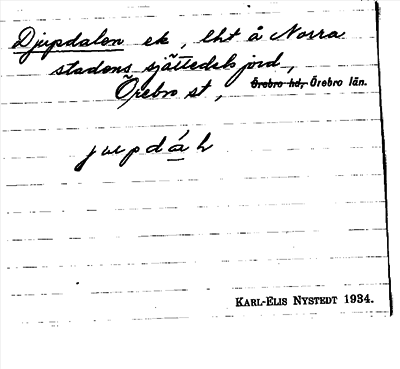 Djupdalen ek, lht å Norra
stadens sjättedelsjord,
Örebro st, Örebro hd, Örebro län.
jupdáḷ
KARL-ELIS NYSTEDT 1934.